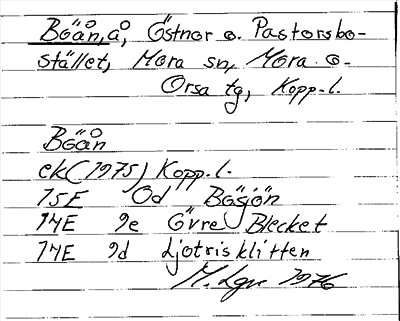 Böån, å, Östnor o. Pastorsbo-
stället, Mora sn, Mora o.
Orsa tg, Kopp. l.
Böån
ek (1975) Kopp. l.
15E 0d Bösjön
14E 9e Övre Blecket
14E 9d Ljotrisklitten
M. Lgn 1976